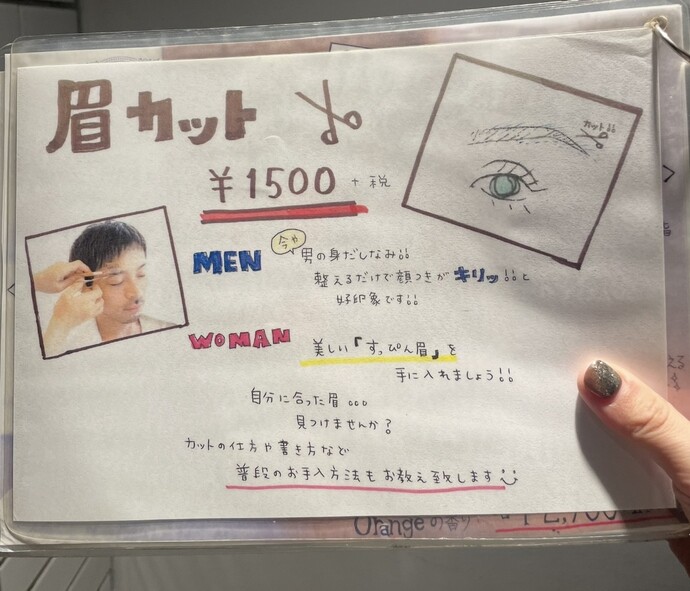 眉カット
カット!!
¥1500 + 税
MEN 今や 男の身だしなみ!!
整えるだけで顔つきがキリッ!!と
好印象です!!
WOMAN 美しい「すっぴん眉」を
手に入れましょう!!
自分に合った眉...
見つけませんか?
カットの仕方や書き方など
普段のお手入方法もお教え致します
Orangeの香り